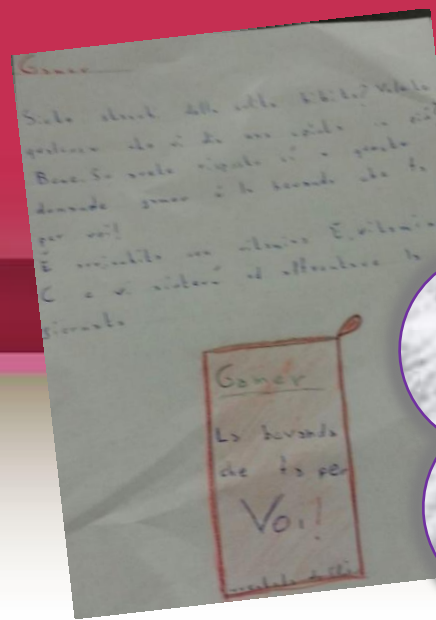 Gamer
Siete stanchi delle solite bibite? Volete
qualcosa che vi dia una spinta in più?
Bene. Se avete risposto sì a queste
domande gamer è la bevanda che fa
per voi!
È arricchita con vitamina E, vitamina
C e vi aiuterà ad affrontare la
giornata
Gamer
La bevanda
che fa per
Voi!